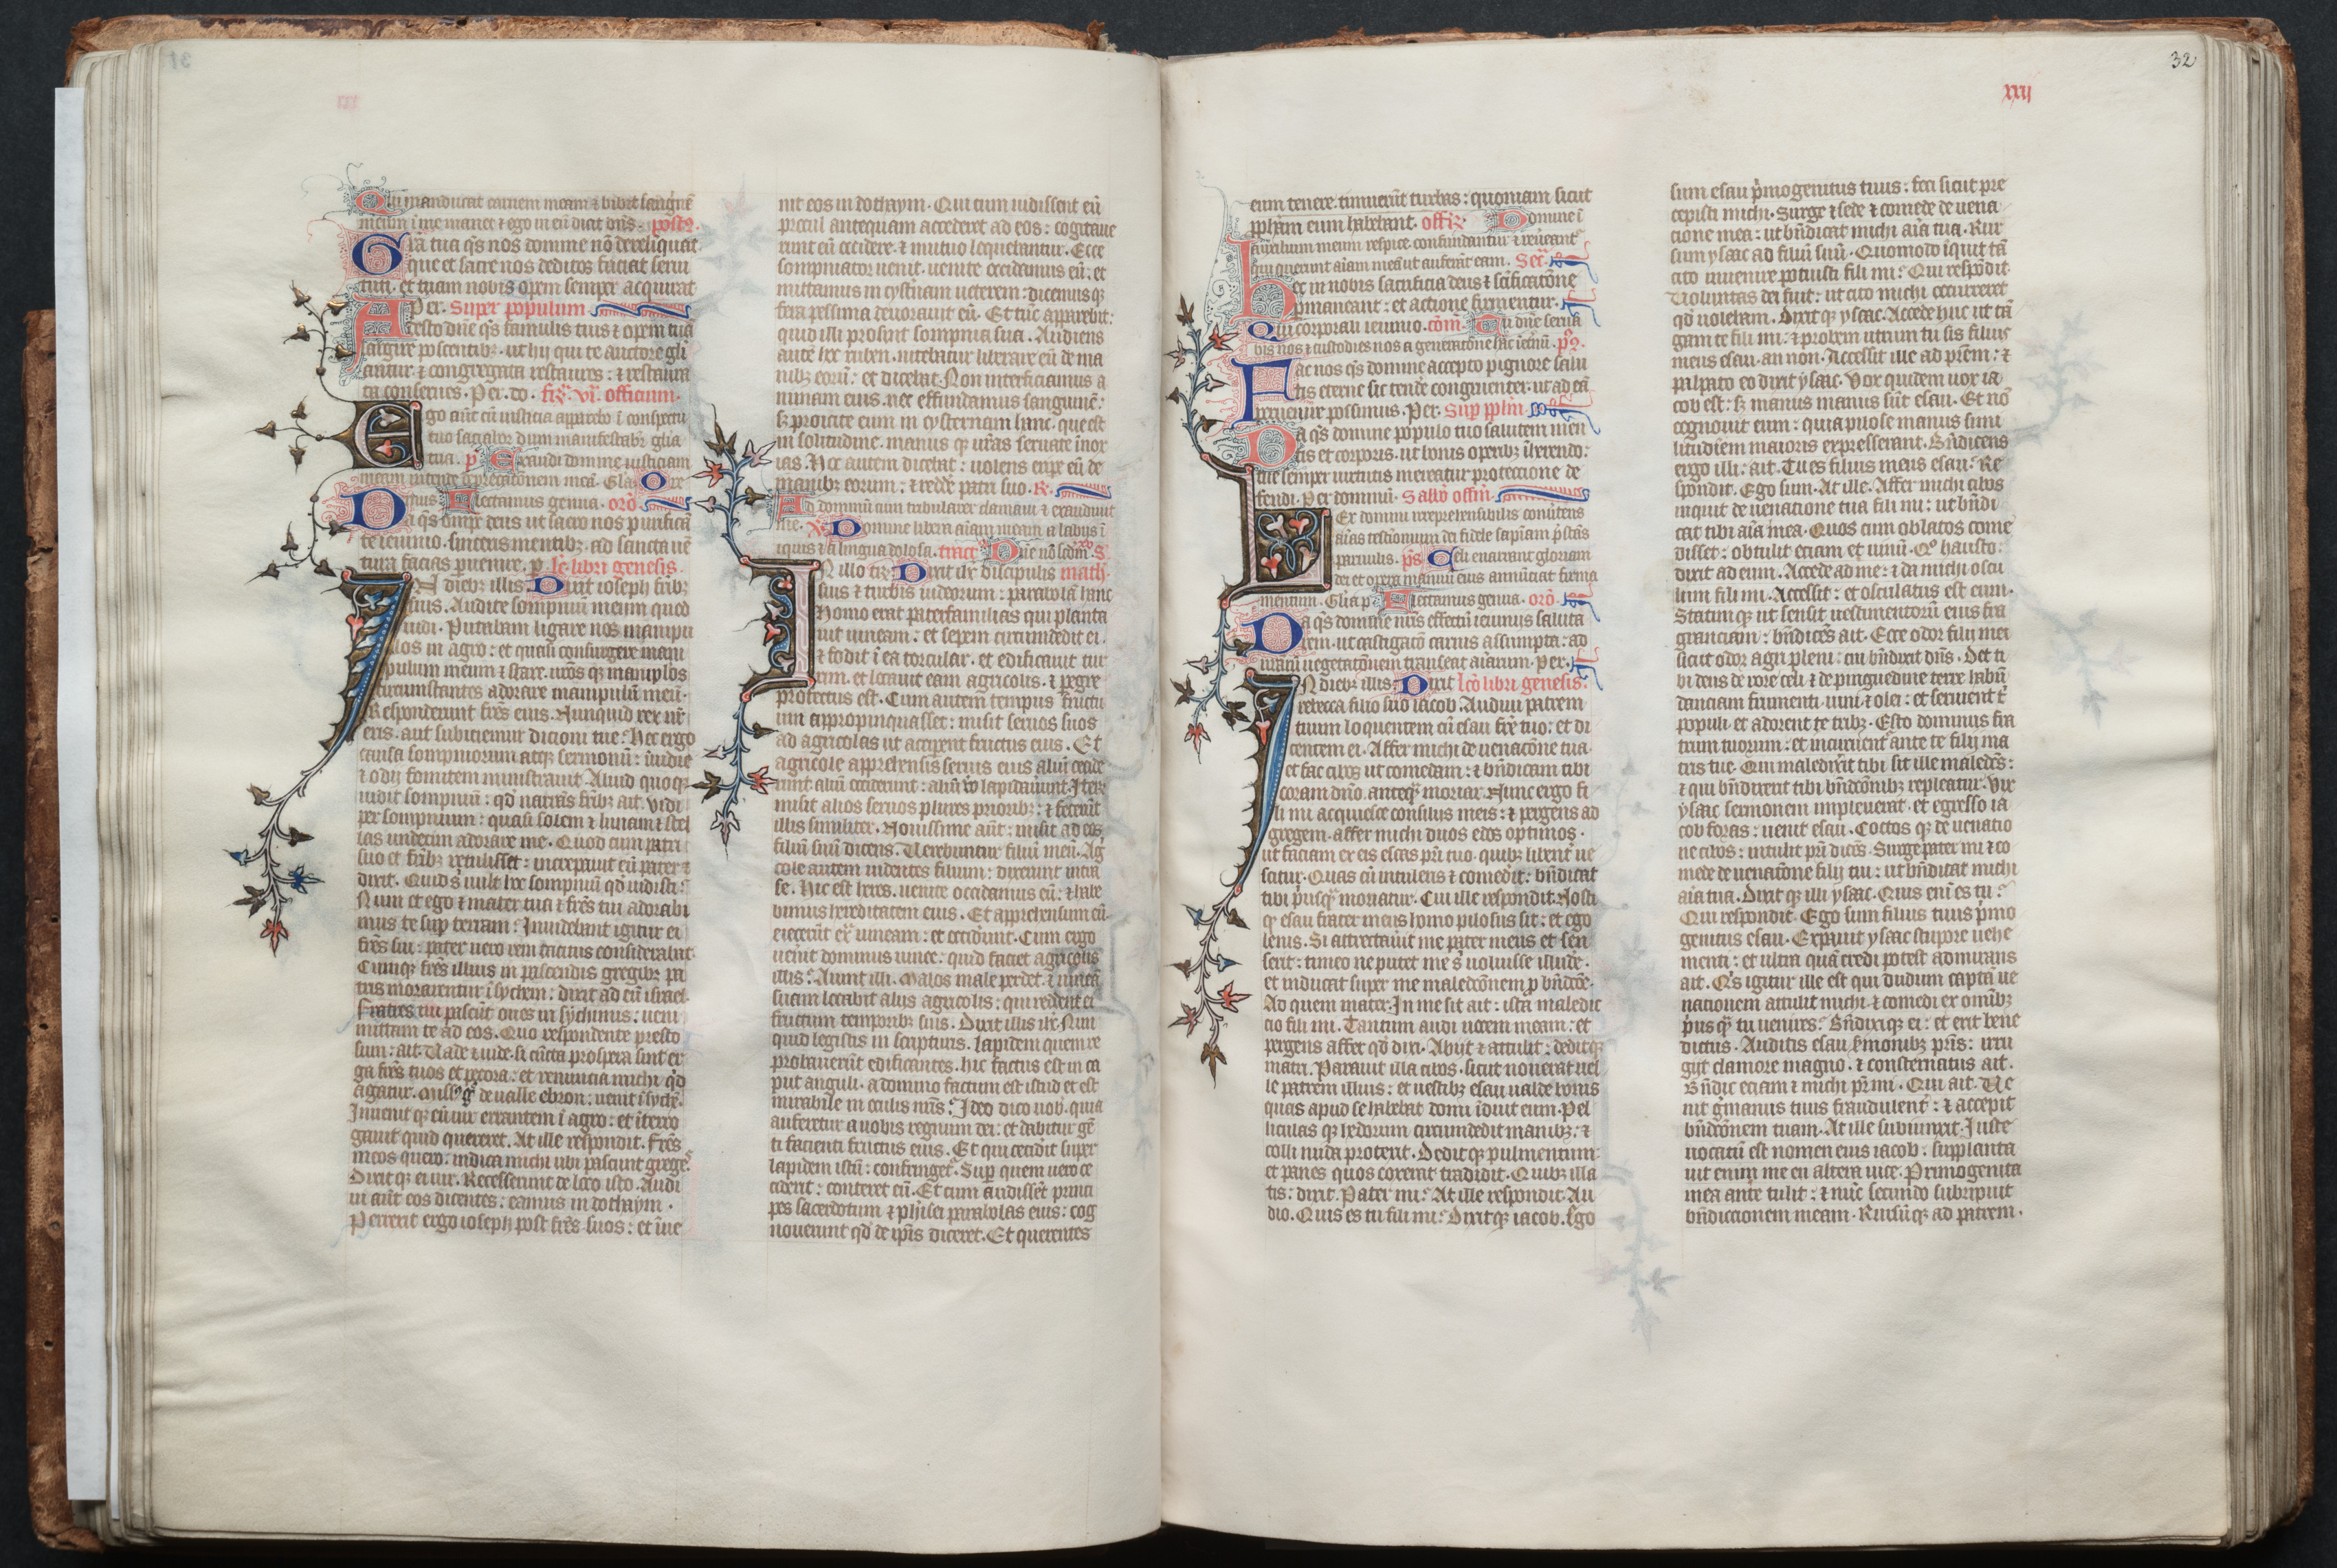 Qui manducat carnem meam ⁊ bibit sāguinē
meum ī me manet ⁊ ego in eū dicat dn̄s. postc̄.
Gr̄a tua q̄s nos domine nō derelīquat
que et sacre nos deditos faciat serui
tuti. et tuam nobis opem semper acquirat
Per. Super populum
Adesto dn̄e q̄s famulis tuis ⁊ opem tuā
largire poscentibꝫ. ut hij qui te auctore glī
antur ⁊ congregata restaures: ⁊ restaura
ta conserues. Per. do. fiꝛ. vi. officium.
Ego aūt cū iusticia apparebo ī conspectu
tuo saciabor dum manifestabꝛ glīa
tua. p̄ Exaudi domine iusticiam
meam intende dep̄cationem meā. Glīa Ore
mus. Flectamus genua. orō.
Da q̄s om̄ps deus ut sacro nos purificā
te ieiunio. sinceris mentibꝫ. ad sancta uē
tura facias puenire. p. lc̄ libri genesis.
In diebꝫ illis Dixit ioseph frībꝫ
suis. Audite sompniū meum quod
uidi. Putabam ligare nos manipu
los in agro: et quasi consurgere mani
pulum meum ⁊ stare. uros qꝫ manipulos
circumstantes adorare manipulū meū.
Responderunt frēs eius. Nunquid rex nr̄
eris. aut subiciemur dicioni tue: Hec ergo
causa sompniorum atqꝫ sermonū: inuidie
⁊ odij fomitem ministrauit. Aliud quoqꝫ
uidit sompniū: qd̄ narrās frībꝫ ait. Vidi
per sompnium: quasi solem ⁊ lunam ⁊ stel
las undecim adorare me. Quod cum patri
suo et frībꝫ retulisset: increpauit eū pater ⁊
dixit. Quid s̄ uult hoc sompniū qd̄ uidisti:
Num et ego ⁊ mater tua ⁊ frēs tui adorabi
mus te suꝑ terram: Inuidebant igitur ei
frēs sui: pater uero rem tacitus considerabat.
Cumqꝫ frēs illius in pascendis gregibꝫ pa
tris morarentur ī sychem: dixit ad eū israel.
Fratres tui pascūt oues in sychimis: ueni
mittam te ad eos. Quo respondente presto
sum: ait. Uade ⁊ uide. si cūcta prospera sint er
ga frēs tuos et pecora: et renuncia michi qd̄
agatur. Missꝰ de ualle ebron: uenit ī sychē.
Inuenit qꝫ eū uir errantem ī agro: et īterro
gauit quid quereret. At ille respondit. Frēs
meos quero: indica michi ubi pascunt greges
Dixit qꝫ ei uir. Recesserunt de loco isto. Audi
ui aūt eos dicentes: eamus in dothaym.
Perrexit ergo ioseph post frēs suos: et īue
nit eos in dothaym. Qui cum uidissent eū
procul antequam accederet ad eos: cogitaue
runt eū occidere. ⁊ mutuo loquebantur. Ecce
sompniator uenit. uenite occidamus eū: et
mittamus in cysternam ueterem: dicemus qꝫ
fera pessima deuorauit eū. Et tūc apparebit:
quid illi prosint sompnia sua. Audiens
autē hec ruben. nitebatur liberare eū de ma
nibꝫ eorū: et dicebat. Non interficiamus a
nimam eius. nec effundamus sanguinē:
sꝫ proicite eum in cysternam hanc. que est
in solitudine. manus qꝫ uras seruate inox
ias. Hec autem dicebat: uolens eripe eū de
manibꝫ eorum: ⁊ redde patri suo. R.
Ad dominū cum tribularer clamaui ⁊ exaudiuit
me. v̄ Domine libera aīam meam a labijs ī
iquis ⁊ a lingua dolosa. tract Dn̄e nō scdm̄. S
In illo tp̄r. Dixit ihc discipulis math.
suis ⁊ turbis iudeorum: parabolā hanc
Homo erat paterfamilias qui planta
uit uineam: et sepem circumdedit ei.
⁊ fodit ī ea torcular. et edificauit tur
rim. et locauit eam agricolis. ⁊ pegre
profectus est. Cum autem tempus fructu
um appropinquasset: misit seruos suos
ad agricolas ut acciperent fructus eius. Et
agricole apprehensis seruis eius aliū cecide
runt aliū occiderunt: aliū vo lapidauerunt. Iterū
misit alios seruos plures prioribꝫ: ⁊ fecerūt
illis similiter. Nouissime aūt: misit ad eos
filiū suū dicens. Uerebuntur filiū meū. Ag
cole autem uidentes filium: dixerunt intra
se. Hic est heres. uenite occidamus eū: ⁊ habe
bimus hereditatem eius. Et apprehensum eū.
eiecerūt ex̄ uineam: et occiderūt. Cum ergo
uenit dominus uinee: quid faciet agricolis
illis: Aiunt illi. Malos male perdet: ⁊ uineā
suam locabit alijs agricolis: qui reddent ei
fructum temporibꝫ suis. Dixit illis ihc. Nun
quid legistis in scripturis. lapidem quem re
probauerūt edificantes. hic factus est in ca
put anguli. a domino factum est istud et est
mirabile in oculis nr̄is: Ideo dico uob. quia
auferetur a uobis regnum dei: et dabitur gē
ti facienti fructus eius. Et qui ceciderit super
lapidem istū: confringetꝛ. Suꝑ quem uero ce
ciderit: conteret eū. Et cum audissēt princi
pes sacerdotum ⁊ phisei parabolas eius: cog
nouerunt qd̄ de ip̄is diceret. Et querentes
32
xxxij
eum tenere. timuerūt turbas: quoniam sicut
ꝓpham eum habebant. offiꝛ. Domine ī
auxilium meum respice. confundantur ⁊ reuereantꝛ
qui querunt aīam meā ut auferāt eam. Sec̄.
Hec in nobis sacrificia deus ⁊ sc̄ificatōne
ꝑmaneant: et actione firmentur.
Qui corporali ieiunio. com̄. Tu dn̄e serua
bis nos ⁊ custodies nos a generatōne hac ī et̄nū. p̄c.
Fac nos q̄s domine accepto pignore salu
tis eterne sic tendē congruenter. ut ad eā
peruenire possimus. Per. Suꝑ pplm̄
Da q̄s domine populo tuo salutem men
tis et corporis. ut bonis operibꝫ īherendo:
tue semper uirtutis mereatur protectione de
fendi. Per dominū. Sabbo offm̄.
Lex domini irreprehensibilis conuertens
aīas testimonium dei fidele sapīam p̄stās
paruulis. p̄s Celi enarrant gloriam
dei et opera manuū eius annūciat firma
mentum. Glīa p Flectamus genua. orō.
Da q̄s domine nr̄is effectū ieiunijs saluta
rem. ut castigacō carnis assumpta: ad
nr̄arū uegetatōnem transeat aīarum. Per.
In diebꝫ illis. Dixit lcō libri genesis.
rebecca filio suo iacob. Audiui patrem
tuum loquentem cū esau frē tuo: et di
centem ei. Affer michi de uenacōne tua.
et fac cibos ut comedam: ⁊ bn̄dicam tibi
coram dn̄o. anteqꝫ moriar. Nunc ergo fi
li mi acquiesce consilijs meis: ⁊ pergens ad
gregem. affer michi duos edos optimos.
ut faciam ex eis escas pr̄i tuo. quibꝫ libent̄ ue
scitur. Quas cū intuleris ⁊ comederit: bn̄dicat
tibi p̄usqꝫ moriatur. Cui ille respondit. Nosti
qꝫ esau frater meus homo pilosus sit: et ego
lenis. Si attrectauerit me pater meus et sen
serit: timeo ne putet me s̄ uoluisse illudē.
et inducat super me maledcōnem ꝓ bn̄dcōe.
Ad quem mater. In me sit ait: ista maledic
cio fili mi. Tantum audi uocem meam: et
pergens affer qd̄ dixi. Abijt ⁊ attulit: dedit qꝫ
matri. Parauit illa cibos. sicut nouerat uel
le patrem illius: et uestibꝫ esau ualde bonis
quas apud se habebat domi īduit eum. Pel
liculas qꝫ hedorum circumdedit manibꝫ: ⁊
colli nuda protexit. Dedit qꝫ pulmentum:
et panes quos coxerat tradidit. Quibꝫ illa
tis: dixit. Pater mi: At ille respondit. Au
dio. Quis es tu fili mi: Dixit qꝫ iacob. Ego
sum esau p̄mogenitus tuus: feci sicut pre
cepisti michi. Surge ⁊ sede ⁊ comede de uena
cione mea: ut bn̄dicat michi aīa tua. Rur
sum ysaac ad filiū suū. Quomodo īquit tā
cito inuenire potuisti fili mi: Qui respōdit.
Voluntas dei fuit: ut cito michi occurreret
qd̄ uolebam. Dixit qꝫ ysaac. Accede huc ut tā
gam te fili mi: ⁊ probem utrum tu sis filius
meus esau. an non. Accessit ille ad prēm: ⁊
palpato eo dixit ysaac. Vox quidem uox ia
cob est: sꝫ manus manus sūt esau. Et nō
cognouit eum: quia pilose manus simi
litudinem maioris expresserant. Bn̄dicens
ergo illi: ait. Tu es filius meus esau: Re
spondit. Ego sum. At ille. Affer michi cibos
inquit de uenatione tua fili mi: ut bn̄di
cat tibi aīa mea. Quos cum oblatos come
disset: obtulit eciam et uinū. Qͦ hausto:
dixit ad eum. Accede ad me: ⁊ da michi oscu
lum fili mi. Accessit: et osculatus est eum.
Statim qꝫ ut sensit uestimentorū eius fra
granciam: bn̄dicēs ait. Ecce odor filij mei
sicut odor agri pleni: cui bn̄dixit dn̄s. Det ti
bi deus de rore celi ⁊ de pinguedine terre habū
danciam frumenti. uini ⁊ olei: et seruient t̄
populi. et adorent te tribꝫ. Esto dominus fra
trum tuorum: et incuruentꝛ ante te filij ma
tris tue. Qui maledixerit tibi sit ille maledcs̄:
⁊ qui bn̄dixerit tibi bn̄dcōnibꝫ repleatur. Vix
ysaac sermonem impleuerat. et egresso ia
cob foras: uenit esau. Coctos qꝫ de uenatio
ne cibos: intulit pr̄i dicēs. Surge pater mi ⁊ co
mede de uenatōne filij tui: ut bn̄dicat michi
aīa tua. Dixit qꝫ illi ysaac. Quis eni es tu:
Qui respondit. Ego sum filius tuus p̄mo
genitus esau. Expauit ysaac stupore uehe
menti: et ultra quā credi potest admirans
ait. Qͥs igitur ille est qui dudum captā ue
nationem attulit michi. ⁊ comedi ex omībꝫ
p̄us qꝫ tu uenires: Bn̄dixi qꝫ ei: et erit bene
dictus. Auditis esau s̄monibꝫ pr̄is: irru
gijt clamore magno. ⁊ consternatus ait.
Bn̄dic eciam ⁊ michi pr̄ mi. Qui ait. Ve
nit ḡmanus tuus fraudulent̄: ⁊ accepit
bn̄dcōnem tuam. At ille subiunxit. Iuste
uocatū est nomen eius iacob. supplanta
uit enim me en altera uice. Primogenita
mea ante tulit: ⁊ nūc secundo subripuit
bn̄diccionem meam. Rursū qꝫ ad patrem.